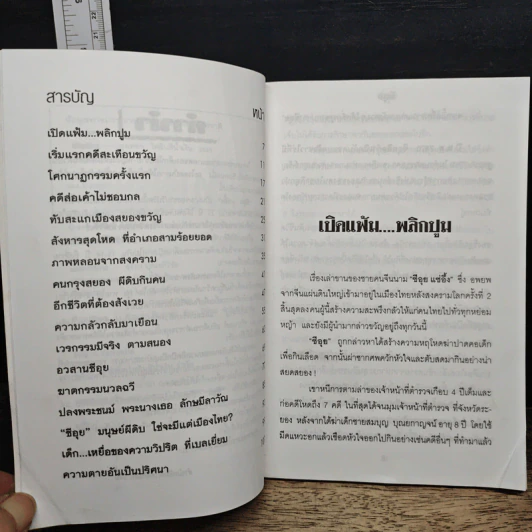 สารบัญ
หน้า
เปิดแฟ้ม...พลิกปูม
เริ่มแรกคดีสะเทือนขวัญ
โศกนาฏกรรมครั้งแรก
คดีส่อเค้าไม่ชอบกล
ทับสะแกเมืองสยองขวัญ
สังหารสุดโหด ที่อำเภอสามร้อยยอด
ภาพหลอนจากสงคราม
คนกรุงสยอง ผีดิบกินคน
อีกชีวิตที่ต้องสังเวย
ความกลัวกลับมาเยือน
เวรกรรมมีจริง ตามสนอง
อวสานซีอุย
ฆาตกรรมนวลฉวี
ปลงพระชนม์ พระนางเธอ ลักษมีลาวัณ
"ซีอุย" มนุษย์ผีดิบ ใช่จะมีแต่เมืองไทย?
เด็ก...เหยื่อของความวิปริต ที่เบลเยี่ยม
ความตายอันเป็นปริศนา
เปิดแฟ้ม....พลิกปูม
เรื่องเล่าขานของชายคนจีนนาม "ซีอุย แซ่อึ้ง" ซึ่ง อพยพ
จากจีนแผ่นดินใหญ่เข้ามาอยู่ในเมืองไทยหลังสงครามโลกครั้งที่ 2
สิ้นสุดลงคนผู้นี้สร้างความสะพรึงกลัวให้แก่คนไทยไปทั่วทุกหย่อม
หญ้า และยังมีผู้นำมากล่าวขวัญอยู่ถึงทุกวันนี้
"ซีอุย" ถูกกล่าวหาได้สร้างความหฤโหดฆ่าปาดคอเด็ก
เพื่อกินเลือด จากนั้นผ่าซากศพควักหัวใจและตับสดมากินอย่างน่า
สยดสยอง !
เขาหนีการตามล่าของเจ้าหน้าที่ตำรวจเกือบ 4 ปีเต็มและ
ก่อคดีโหดถึง 7 คดี ในที่สุดได้จนมุมเจ้าหน้าที่ตำรวจ ที่จังหวัดระ-
ยอง หลังจากได้ฆ่าเด็กชายสมบุญ บุณยกาญจน์ อายุ 8 ปี โดยใช้
มีดแหวะอกแล้วเชือดหัวใจออกไปกินอย่างเช่นคดีอื่นๆ ที่ทำมาแล้ว